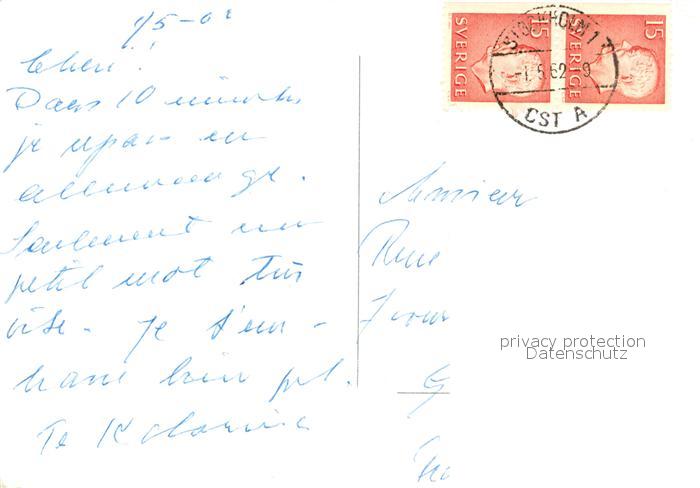 1/5-62
Cheri!
Dans 10 minutes
je repars en
allemagne.
Seulement un
petit mot très
vite. Je t'em-
brasse bien fort.
Ta
SVERIGE 15
SVERIGE 15
STOCKHOLM 17
-1.5.62-9
ÖST A
Monsieur
Rene
privacy protection
Datenschutz